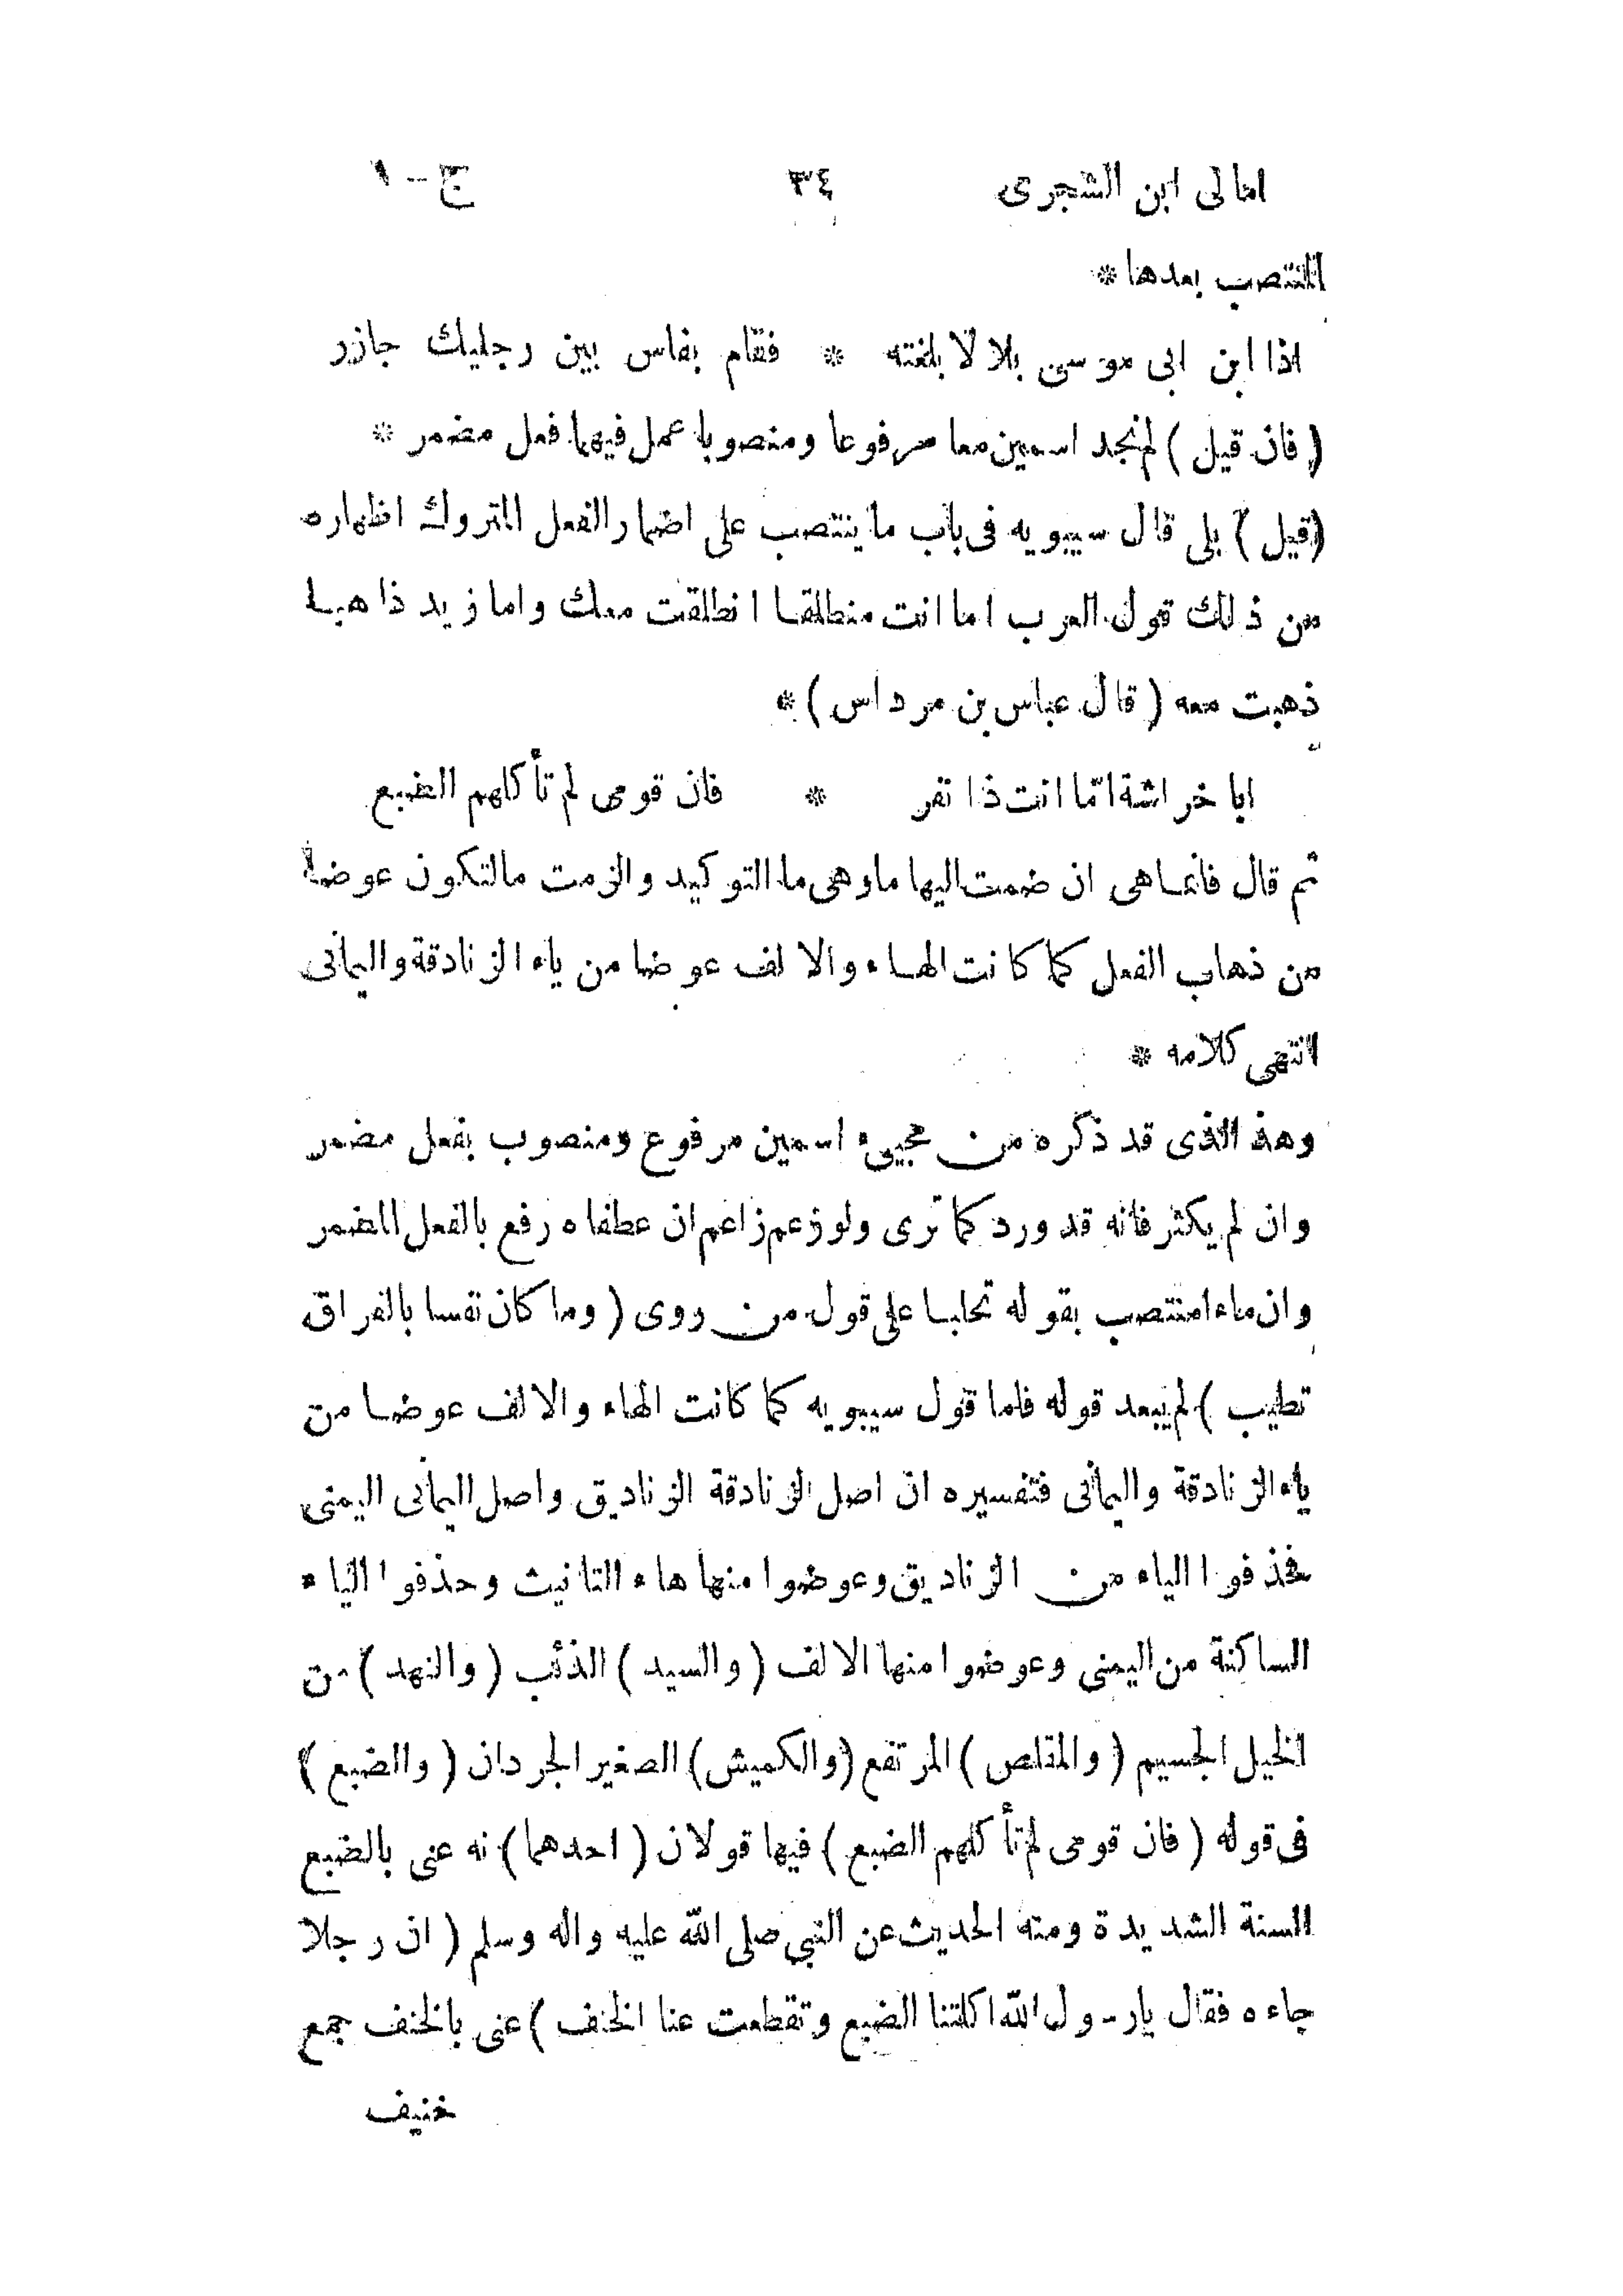 امالى ابن الشجرى ٣٤ ج - ١
المنتصب بعدها *
اذا ابن ابى موسى بلالا بلغته * فقام بفاس بين رجليك جازر
( فان قيل ) لم نجد اسمين معا مرفوعا ومنصوبا عمل فيهما فعل مضمر *
(قيل ) بلى قال سيبويه فى باب ما ينتصب على اضمار الفعل المتروك اظهاره
من ذلك قول العرب اما انت منطلقا انطلقت معك واما زيد ذاهبا
ذهبت معه ( قال عباس بن مرداس ) *
ابا خراشة امّا انت ذا نفر * فان قومى لم تأكلهم الضبع
ثم قال فانما هى ان ضمت اليها ما وهى ما التوكيد والزمت ما لتكون عوضا
من ذهاب الفعل كما كانت الهاء والالف عوضا من ياء الزنادقة واليمانى
انتهى كلامه *
وهذ الذى قد ذكره من مجيىء اسمين مرفوع ومنصوب بفعل مضمر
وان لم يكثر فانه قد ورد كما ترى ولو زعم زاعم ان عطفاه رفع بالفعل المضمر
وان ماءا منتصب بقوله تحلبا على قول من روى ( وما كان نفسا بالفراق
تطيب ) لم يبعد قوله فاما قول سيبويه كما كانت الهاء والالف عوضا من
ياء الزنادقة واليمانى فتفسيره ان اصل الزنادقة الزناديق واصل اليمانى اليمنى
فحذفوا الياء من الزناديق وعوضوا منها هاء التانيث وحذفوا الياء
الساكنة من اليمنى وعوضوا منها الالف ( والسيد ) الذئب ( والنهد ) من
الخيل الجسيم ( والمقلص ) المرتفع ( والكميش ) الصغير الجردان ( والضبع )
فى قوله ( فان قومى لم تأكلهم الضبع ) فيها قولان ( احدهما ) نه عنى بالضبع
السنة الشديدة ومنه الحديث عن النبي صلى الله عليه واله وسلم ( ان رجلا
جاءه فقال يارسول الله اكلتنا الضبع وتقطعت عنا الخنف ) عنى بالخنف جمع
خنيف